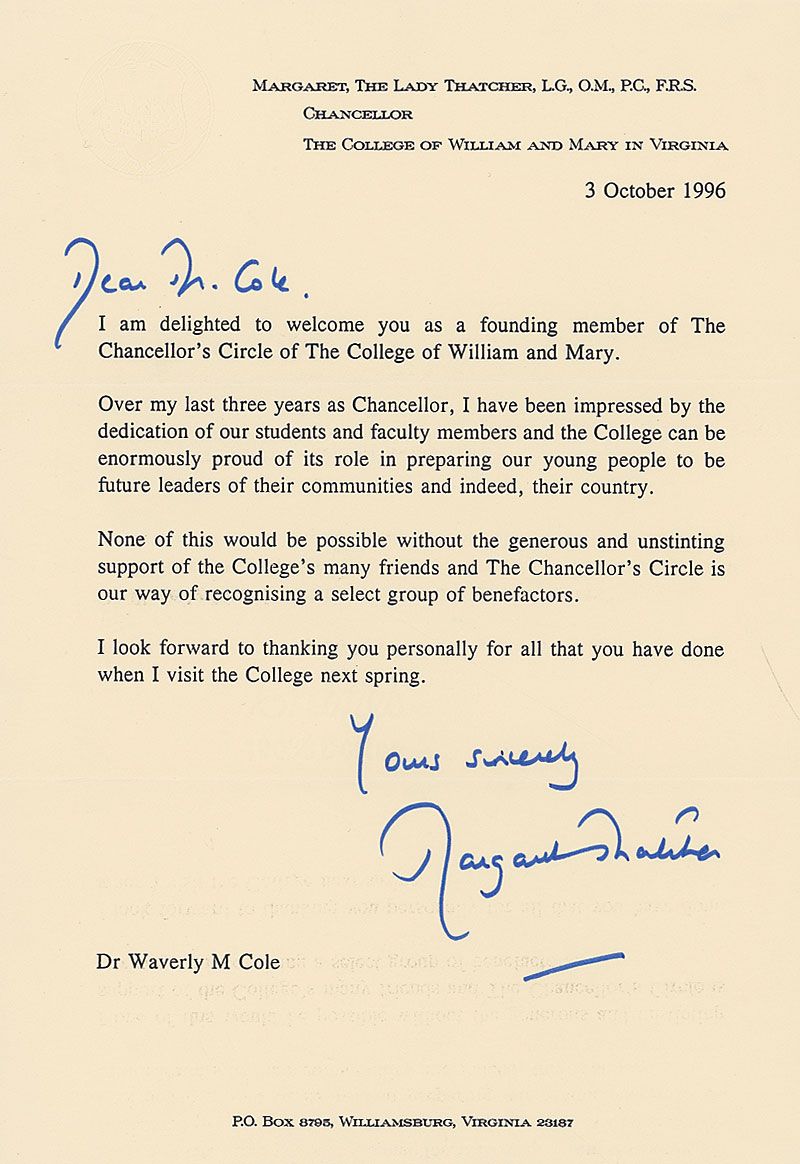 Margaret, The Lady Thatcher, L.G., O.M., P.C., F.R.S.
Chancellor
The College of William and Mary in Virginia
3 October 1996
Dear Dr. Cole.
I am delighted to welcome you as a founding member of The
Chancellor's Circle of The College of William and Mary.
Over my last three years as Chancellor, I have been impressed by the
dedication of our students and faculty members and the College can be
enormously proud of its role in preparing our young people to be
future leaders of their communities and indeed, their country.
None of this would be possible without the generous and unstinting
support of the College's many friends and The Chancellor's Circle is
our way of recognising a select group of benefactors.
I look forward to thanking you personally for all that you have done
when I visit the College next spring.
Yours sincerely
Margaret Thatcher
Dr Waverly M Cole
P.O. Box 8795, Williamsburg, Virginia 23187